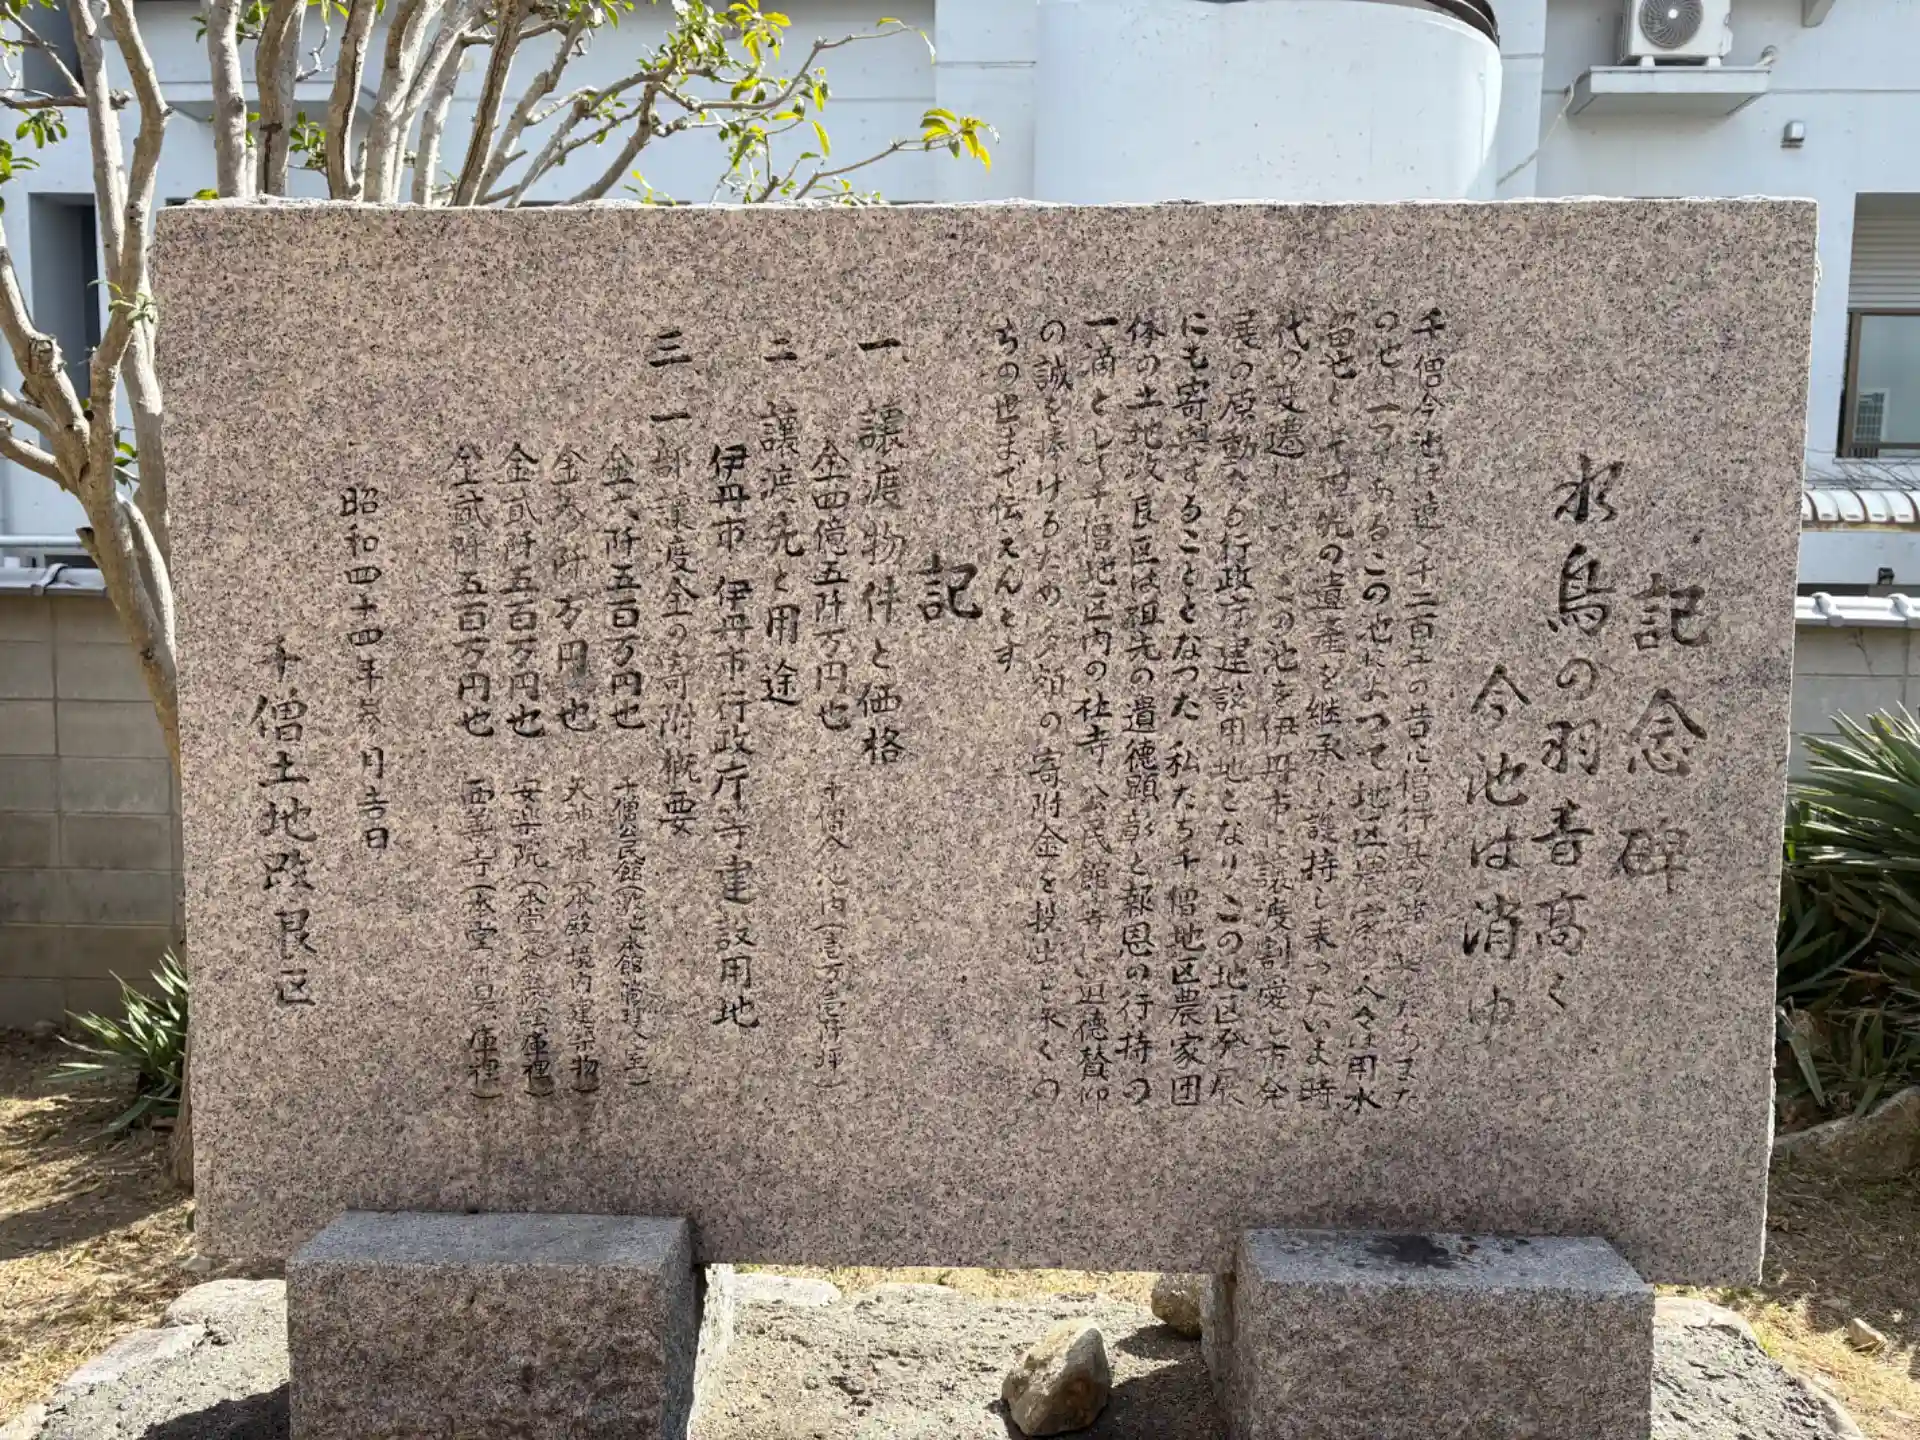 記念碑
水鳥の羽音高く
今池は消ゆ
千僧今池は遠く千二百年の昔に僧行基の築いた
の池の一つであるこの池によつて地区農家の人々は用水
溜池として祖先の遺産を継承し護持し来つたいま時
代の変遷に この池を伊丹市に譲渡割愛し市発
展の原動 る行政庁建設用地となりこの地区発展
にも寄與することとなつた 私たち千僧地区農家団
体の土地改良区は祖先の遺徳顕彰と報恩の行持の
一端として千僧地区内の社寺 公民館等に 徳賛仰
の誠を捧げるため多額の寄附金を投出し永くの
ちの世まで伝えんとす
記
一 譲渡物件と価格
金四億五阡万円也 千僧今池内(壱万壱阡坪)
二 譲渡先と用途
伊丹市 伊丹市行政庁等建設用地
三 一部譲渡金の寄附概要
金六阡五百万円也 千僧公民館( 本館管理人室)
金参阡万円也 天神社(本殿境内建築物)
金貳阡五百万円也 安楽院(本堂 庫裡)
金貳阡五百万円也 西善寺(本堂 庫裡)
昭和四十四年 月吉日
千僧土地改良区